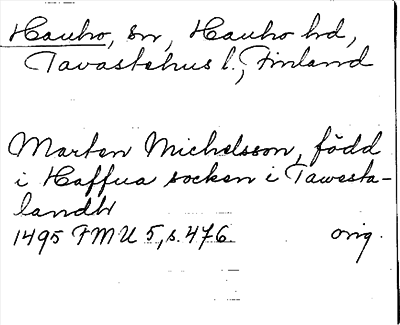 Hauho, sn, Hauho hd,
Tavastehus l., Finland
Marten Michelsson, född
i Haffua socken i Tawesta-
landh
1495 FMU 5, s. 476 orig.